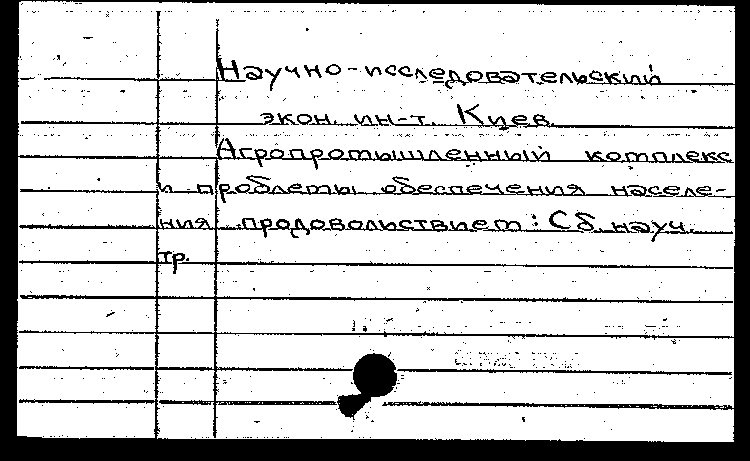 Научно-исследовательский
экон. ин-т. Киев.
Агропромышленный комплекс
и проблемы обеспечения населе-
ния продовольствием: Сб. науч.
тр.